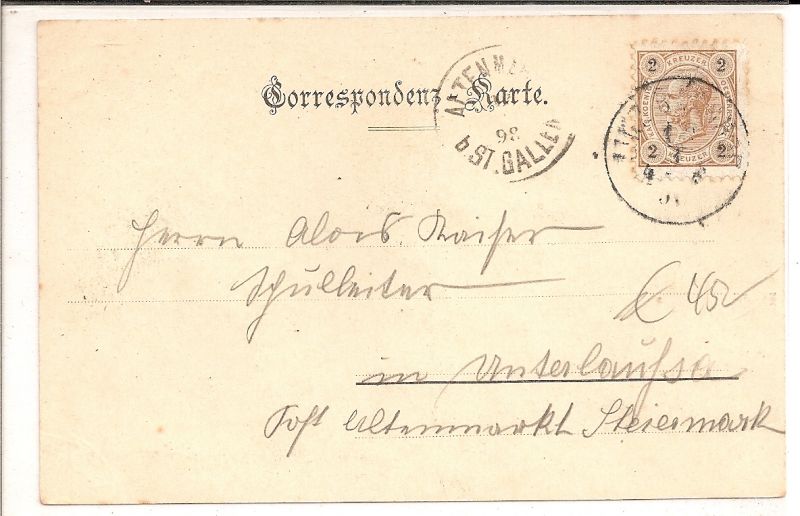 Correspondenz-Karte.
ALTENM
98
b ST. GALLEN
2 KREUZER 2
2 KREUZER 2
Herrn Alois Kaiser
Schulleiter
€ 45
in Unterlaussa
Post Altenmarkt Steiermark